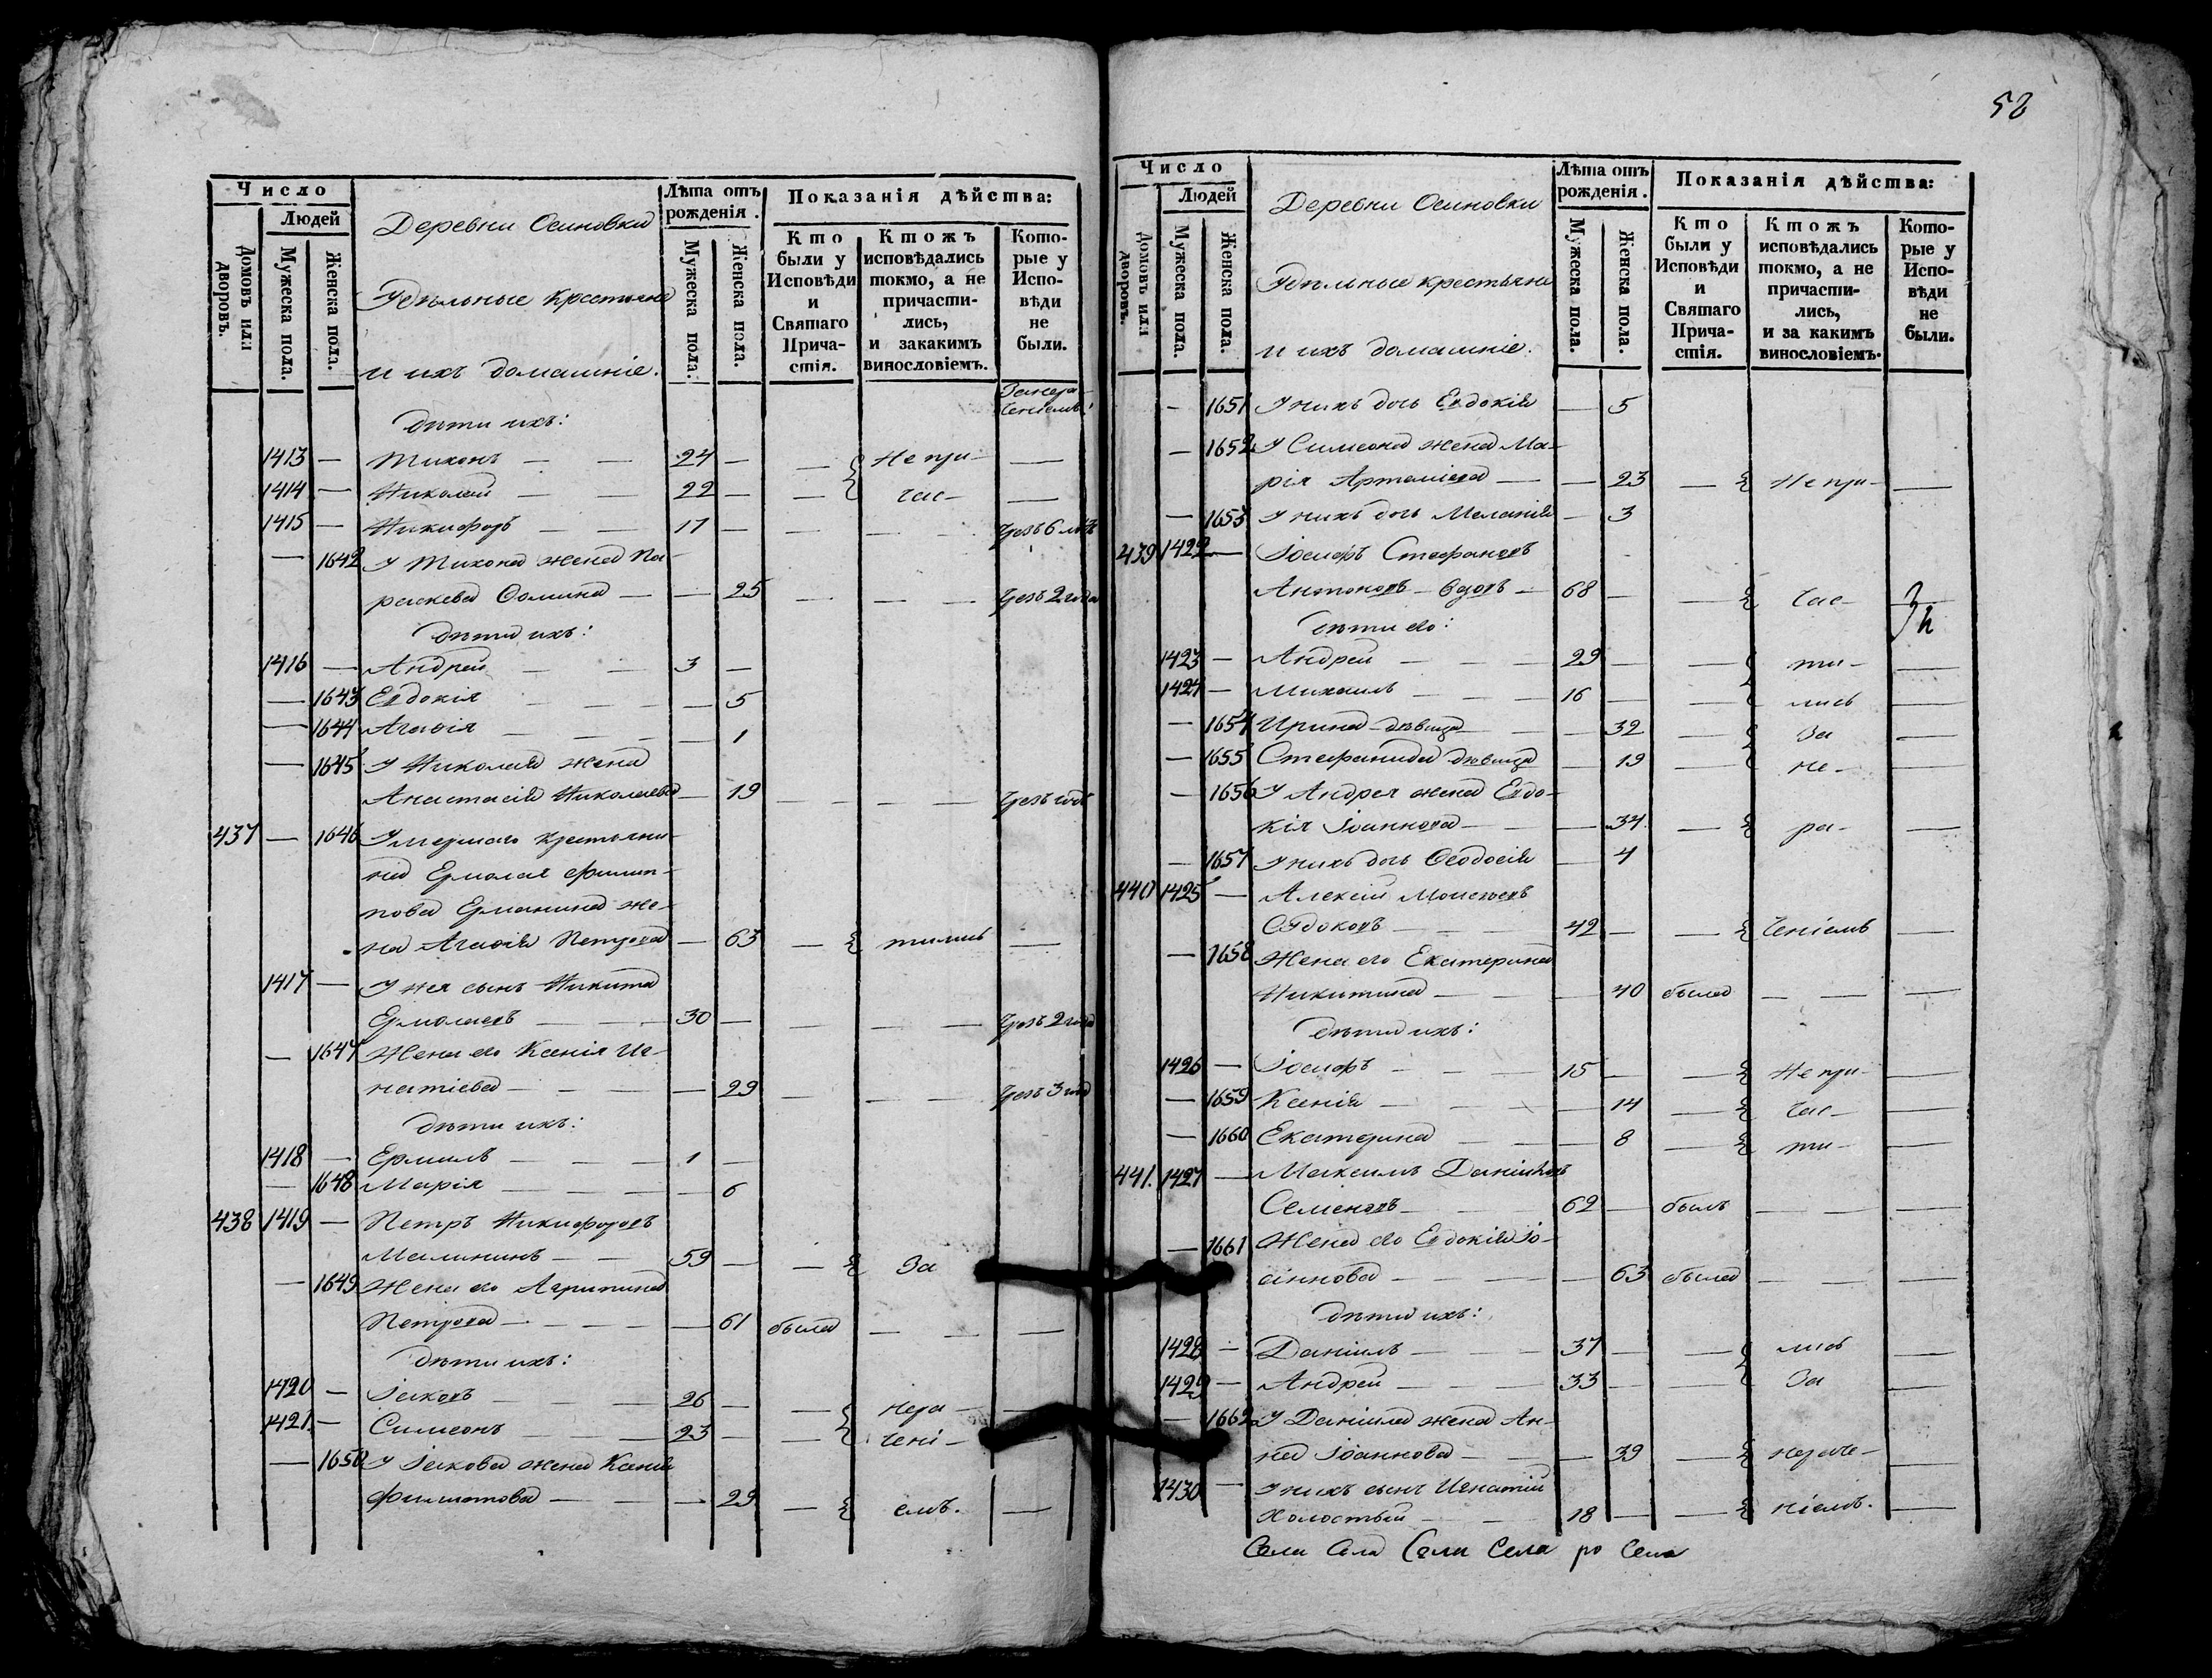 Число
Людей
Домовъ или дворовъ.
Мужеска пола.
Женска пола.
Деревни Осиновки
Удѣльные крестьяне
и ихъ домашнie.
Лѣта отъ рожденія.
Мужеска пола.
Женска пола.
Показанія дѣйства:
Кто были у Исповѣди и Святаго Причастія.
Ктожъ исповѣдались токмо, а не причастились, и закакимъ винословіемъ.
Которые у Исповѣди не были.
Занера-
ченіемъ:
дѣти ихъ:
1413 — Тихонъ — — 24 — — Непри- —
1414 — Николай — — 22 — — час- —
1415 — Никифоръ — — 17 — — — — Чрезъ 6 лѣтъ
— 1642 У Тихона жена Па-
раскева Фомина — — 25 — — — Чрезъ 2 года
дѣти ихъ:
1416 — Андрей — — 3 —
— 1643 Евдокія — — — 5
— 1644 Агафія — — — 1
— 1645 У Николая жена
Анастасія Николаева — 19 — — — Чрезъ годъ
437 — 1646 Умершаго крестьяни-
на Ермолая Филип-
пова Ерманина же-
на Агафія Петрова — 63 — тились —
1417 — У нея сынъ Никита
Ермолаевъ — — 30 — — — — Чрезъ 2 года
— 1647 Жена его Ксенія Иг-
натіева — — — 29 — — — Чрезъ 3 год
дѣти ихъ:
1418 — Ермилъ — — 1 —
— 1648 Марія — — — 6
438 1419 — Петръ Никифоровъ
Малининъ — — 59 — — За
— 1649 Жена его Агрипина
Петрова — — — 61 была — — —
дѣти ихъ:
1420 — Іаковъ — — 26 — — нера- —
1421. — Симеонъ — — 23 — — чені- —
— 1650 У Іакова жена Ксенія
Филатова — — 29 — емъ. —
52
Число
Людей
Домовъ или дворовъ.
Мужеска пола.
Женска пола.
Деревни Осиновки
Удѣльные крестьяне
и ихъ домашнie.
Лѣта отъ рожденія.
Мужеска пола.
Женска пола.
Показанія дѣйства:
Кто были у Исповѣди и Святаго Причастія.
Ктожъ исповѣдались токмо, а не причастились, и за какимъ винословіемъ.
Которые у Исповѣди не были.
— 1651 У нихъ дочь Евдокія — 5
— 1652 У Симеона жена Ма-
рія Артеміева — — 23 — Непри- —
— 1653 У нихъ дочь Меланія — 3
439 1422 — Іосифъ Стефановъ
Антоновъ — вдовъ — 68 — — час- —
дѣти его:
1423 — Андрей — — 29 — — ти- —
1424 — Михаилъ — — 16 — — лись —
— 1654 Ирина — дѣвица — 32 — За —
— 1655 Стефанида дѣвица — 19 — не- —
— 1656 У Андрея жена Евдо-
кія Іоаннова — — 34. — ра- —
— 1657 У нихъ дочь Феодосія — 4
440 1425 — Алексій Моисеевъ
— — 42 — — ченіемъ —
— 1658 Жена его Екатерина
Никитина — — 40 была — — —
дѣти ихъ:
1426 — Іосифъ — — 15 — — Непри- —
— 1659 Ксенія — — — 14 — час- —
— 1660 Екатерина — — 8 — ти- —
441. 1427 — Максимъ Даніиловъ
Семеновъ — — 62 — былъ — — —
— 1661 Жена его Евдокія Іо-
аннова — — — 63 была — — —
дѣти ихъ:
1428 — Даніилъ — — 37 — — лись —
1429 — Андрей — — 33 — — За —
— 1662 У Даніила жена Ан-
на Іоаннова — — 39 — нераче- —
1430 — У нихъ сынъ Игнатій
Холостый — — 18 — — ніемъ. —
Села Села Села Села ро Села